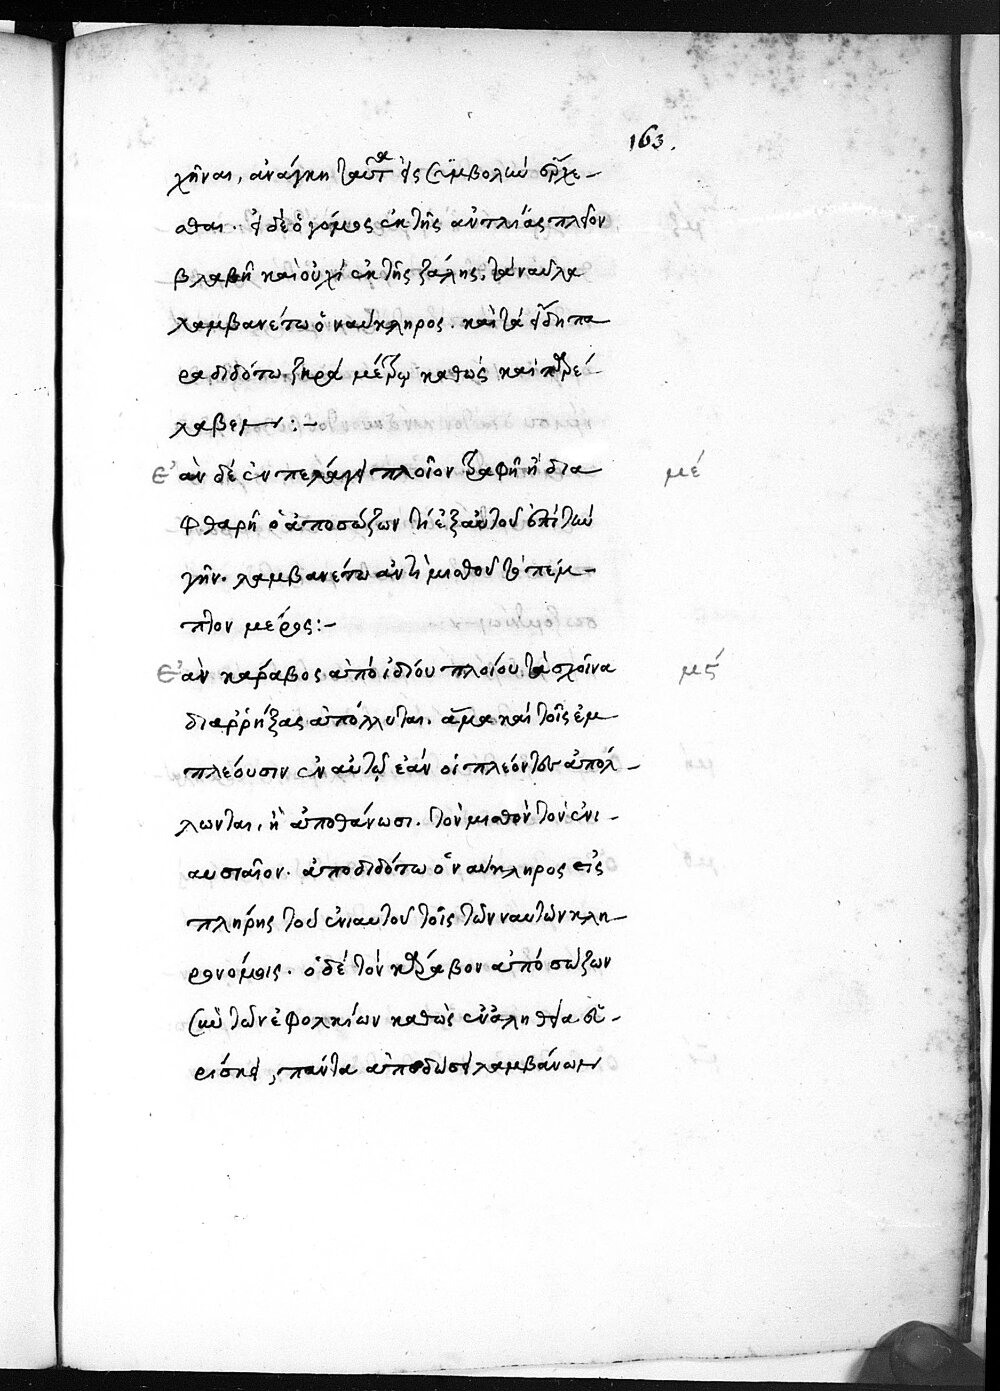 163.
χῆναι, ἀνάγκη ταῦτα εἰς συμβολὴν ἔρχε-
σθαι. εἰ δὲ ὁ γόμος ἐκ τῆς ἀντλίας πλεῖον
βλαβῆ καὶ οὐχὶ ἐκ τῆς ζάλης, τὰ ναῦλα
λαμβανέτω ὁ ναύκληρος. καὶ τὰ εἴδη πα
ραδιδότω ξηρὰ μέτρῳ καθὼς καὶ παρέ-
λαβεν :-
Ἐὰν δὲ ἐν πελάγει πλοῖον στραφῆ ἢ δια
μέ
φθαρῆ ὁ ἀποσώζων τὶ ἐξ αὐτοῦ ἐπὶ τὴν
γῆν. λαμβανέτω ἀντὶ μισθοῦ τὸ πέμ-
πτον μέρος :-
Ἐὰν κάραβος ἀπὸ ἰδίου πλοίου τὰ σχοῖνα
μς
διαρρήξας ἀπόλλυται. ἅμα καὶ τοῖς ἐμ-
πλέουσιν ἐν αὐτῷ ἐὰν οἱ πλέοντες ἀπόλ-
λωνται, ἢ ἀποθάνωσι. τὸν μισθὸν τὸν ἐνι-
αυσιαῖον. ἀποδιδότω ὁ ναύκληρος εἰς
πλήρης τοῦ ἐνιαυτοῦ τοῖς τῶν ναυτῶν κλη-
ρονόμοις. ὁ δὲ τὸν κάραβον ἀποσώζων
σὺν τῶν ἐφολκίων καθὼς ἐν ἀληθείᾳ εὑ-
ρίσκει, πάντα ἀποδώσει λαμβάνων